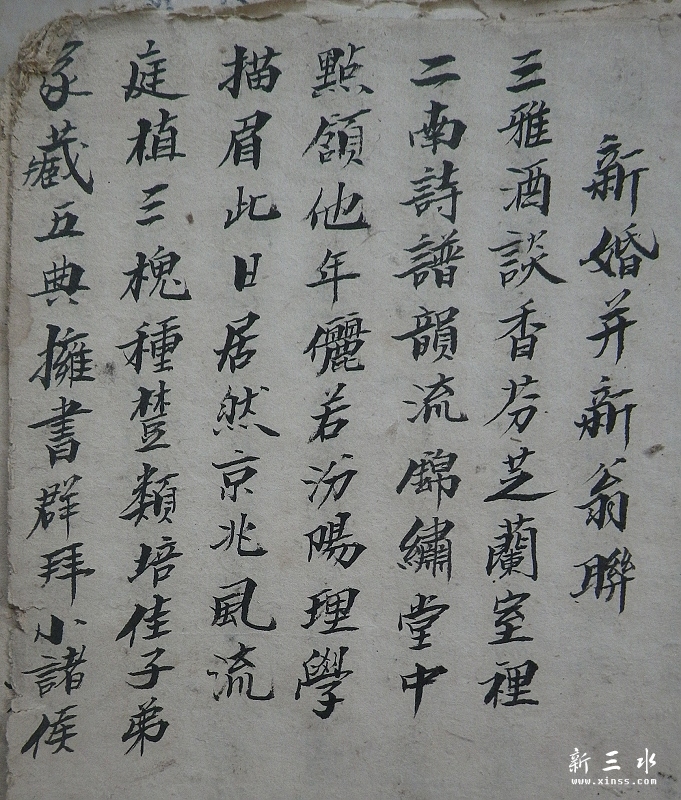 新婚并新翁聯
三雅酒談香芬芝蘭室裡
二南詩譜韻流錦繡堂中
點頷他年儷若汾陽理學
描眉此日居然京兆風流
庭植三槐種蓺類培佳子弟
家藏五典擁書群拜小諸侯
新三水
www.xinss.com